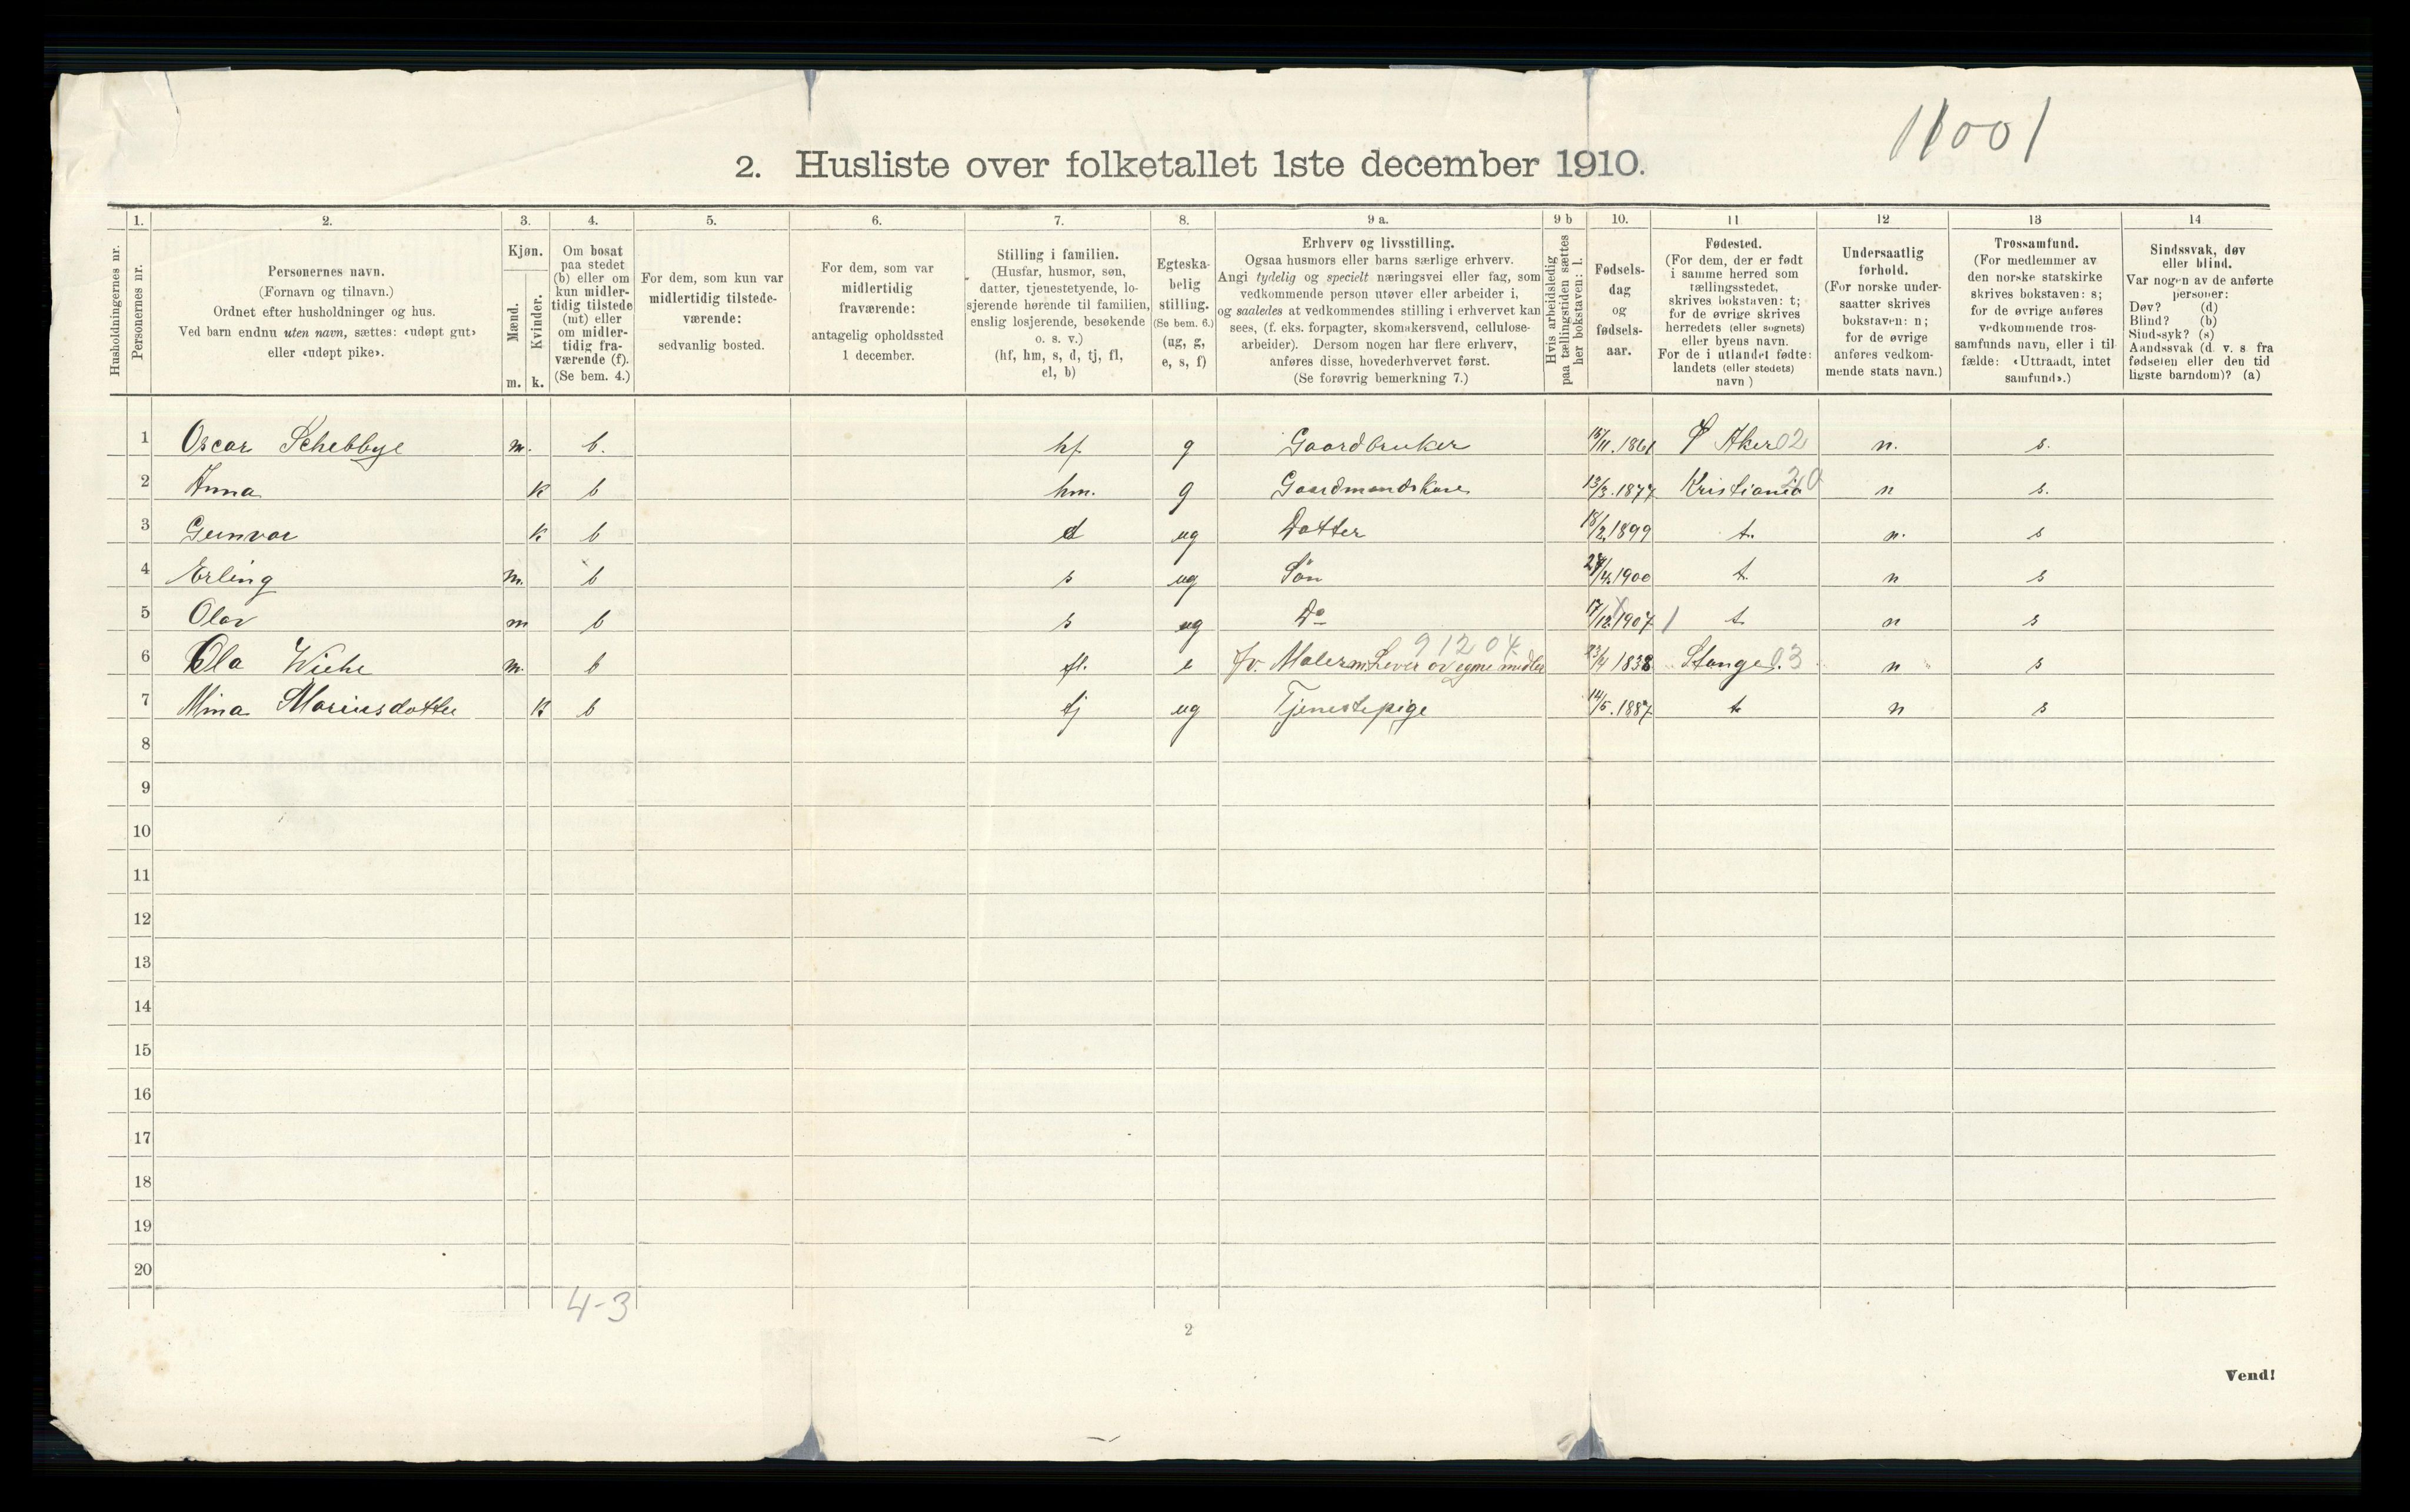 11001
2. Husliste over folketallet 1ste december 1910.
Husholdningernes nr.
1.
Personernes nr.
2.
Personernes navn.
(Fornavn og tilnavn.)
Ordnet efter husholdninger og hus.
Ved barn endnu uten navn, sættes: «udøpt gut»
eller «udøpt pike».
3.
Kjøn.
Mænd. Kvinder.
m. k.
4.
Om bosat
paa stedet
(b) eller om
kun midler-
tidig tilstede
(mt) eller
om midler-
tidig fra-
værende (f).
(Se bem. 4.)
5.
For dem, som kun var
midlertidig tilstede-
værende:
sedvanlig bosted.
6.
For dem, som var
midlertidig
fraværende:
antagelig opholdssted
1 december.
7.
Stilling i familien.
(Husfar, husmor, søn,
datter, tjenestetyende, lo-
sjerende hørende til familien,
enslig losjerende, besøkende
o. s. v.)
(hf, hm, s, d, tj, fl,
el, b)
8.
Egteska-
belig
stilling.
(Se bem. 6.)
(ug, g,
e, s, f)
9 a.
Erhverv og livsstilling.
Ogsaa husmors eller barns særlige erhverv.
Angi tydelig og specielt næringsvei eller fag, som
vedkommende person utøver eller arbeider i,
og saaledes at vedkommendes stilling i erhvervet kan
sees, (f. eks. forpagter, skomakersvend, cellulose-
arbeider). Dersom nogen har flere erhverv,
anføres disse, hovederhvervet først.
(Se forøvrig bemerkning 7.)
9 b
Hvis arbeidsledig
paa tællingstiden sættes
her bokstaven: l.
10.
Fødsels-
dag
og
fødsels-
aar.
11
Fødested.
(For dem, der er født
i samme herred som
tællingsstedet,
skrives bokstaven: t;
for de øvrige skrives
herredets (eller sognets)
eller byens navn.
For de i utlandet fødte:
landets (eller stedets)
navn)
12
Undersaatlig
forhold.
(For norske under-
saatter skrives
bokstaven: n;
for de øvrige
anføres vedkom-
mende stats navn.)
13
Trossamfund.
(For medlemmer av
den norske statskirke
skrives bokstaven: s;
for de øvrige anføres
vedkommende tros-
samfunds navn, eller i til
fælde: «Uttraadt, intet
samfund».)
14
Sindssvak, døv
eller blind.
Var nogen av de anførte
personer:
Døv? (d)
Blind? (b)
Sindssyk? (s)
Aandssvak (d. v. s. fra
fødselen eller den tid
ligste barndom)? (a)
1 Oscar Schebbye m. b. hf g Gaardbruker 15/11.1861 Ø Aker 02 n. s.
2 Anna k b hm. g Gaardmandskone 13/3.1877 Kristiania 20 n s.
3 Gunvor k b d ug Datter 18/2.1899 t. n. s
4 Erling m. b s ug Sön 1900 t. n s
5 Olav m b s ug Do 17/12 1907 1 t. n s
91204
6 Ola Wiche m. b fl. e Fv. Malerm. Lever av egne midler 23/4 1838 Stange 03 n s
7 Mina Mariusdotter k b tj ug Tjenestepige 14/5.1887 t n s
8
9
10
11
12
13
14
15
16
17
18
19
20
4-3
2
Vend!